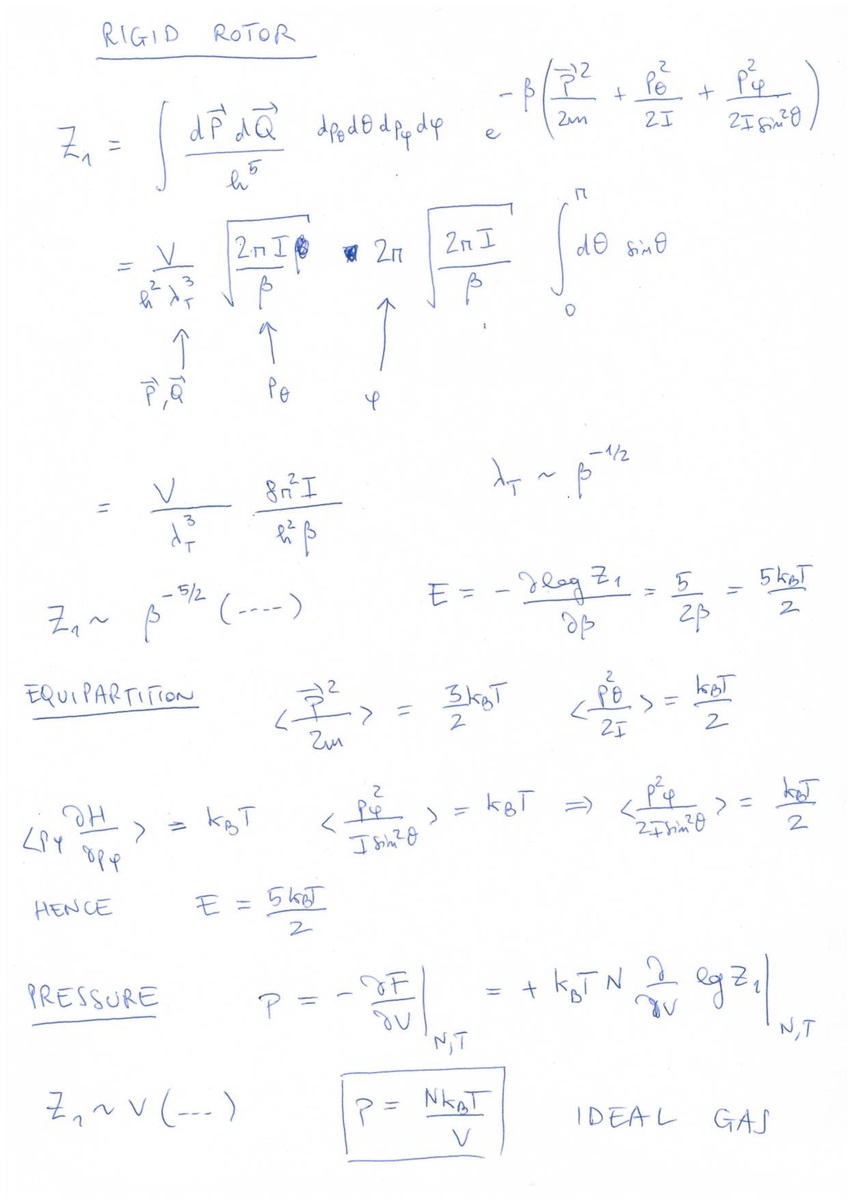 RIGID ROTOR
Z₁ = ∫ dP⃗ dQ⃗ / h⁵ dp_θ dθ dp_φ dφ e^{-β(P⃗²/2m + p_θ²/2I + p_φ²/2I sin²θ)}
= V/(h² λ_T³) √(2πI/β) 2π √(2πI/β) ∫₀^π dθ sinθ
↑ ↑ ↑
P⃗,Q⃗ p_θ φ
= V/λ_T³ 8π²I/(h²β) λ_T ~ β^{-1/2}
Z₁ ~ β^{-5/2} (----) E = - ∂log Z₁/∂β = 5/2β = 5k_BT/2
EQUIPARTITION <P⃗²/2m> = 3k_BT/2 <p_θ²/2I> = k_BT/2
<p_φ ∂H/∂p_φ> = k_BT <p_φ²/I sin²θ> = k_BT ⇒ <p²_φ/2I sin²θ> = k_BT/2
HENCE E = 5k_BT/2
PRESSURE P = - ∂F/∂V |_{N,T} = + k_BT N ∂/∂V lg Z₁ |_{N,T}
Z₁ ~ V (---) P = Nk_BT/V IDEAL GAS